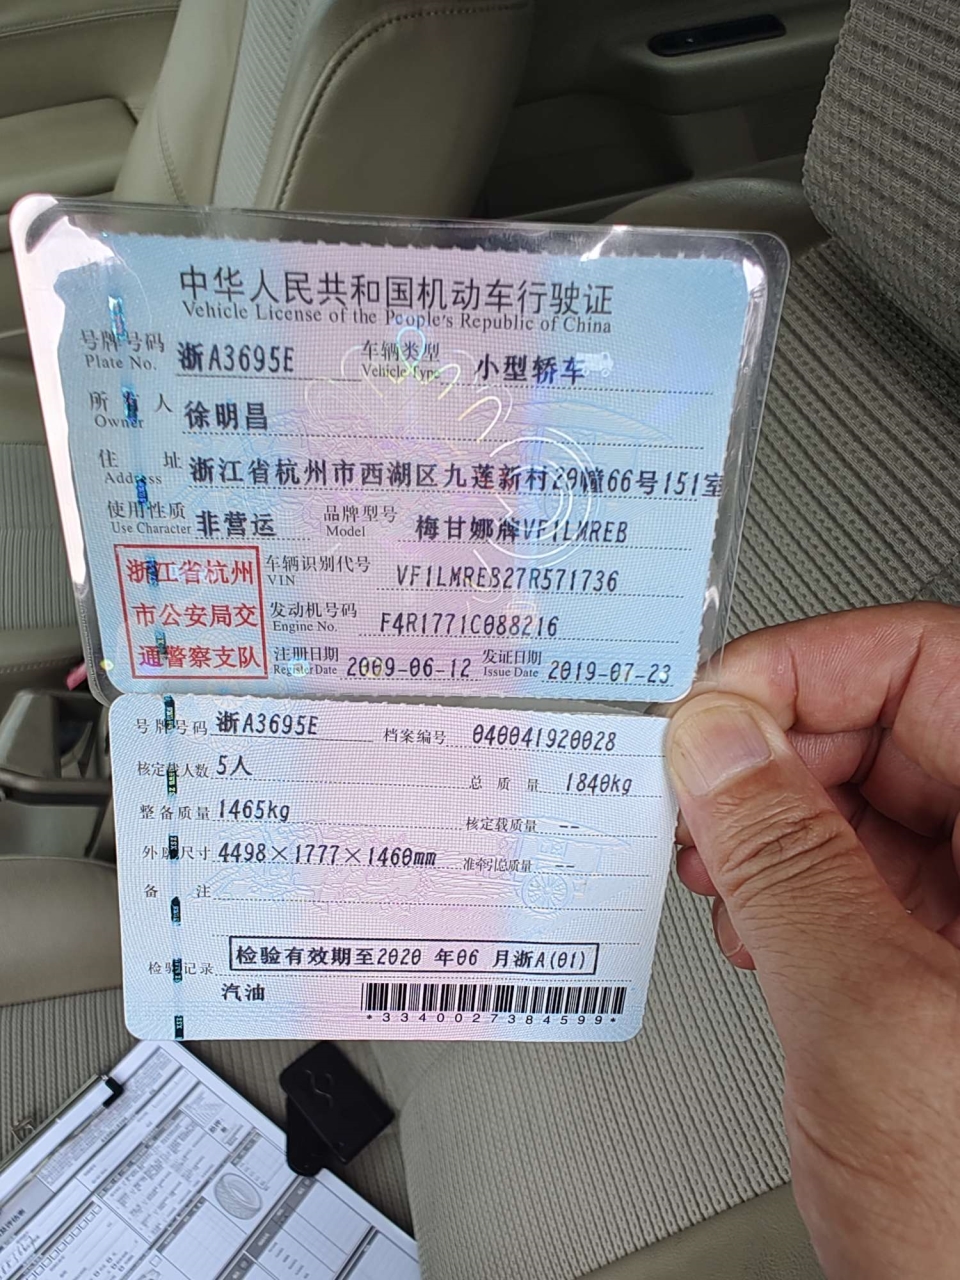 中华人民共和国机动车行驶证
Vehicle License of the People's Republic of China
号牌号码 浙A3695E 车辆类型 小型轿车
Plate No. Vehicle Type
所有人 徐明昌
Owner
住址 浙江省杭州市西湖区九莲新村29幢66号151室
Address
使用性质 非营运 品牌型号 梅甘娜牌VF1LMREB
Use Character Model
浙江省杭州
市公安局交
通警察支队
车辆识别代号 VF1LMREB27R571736
VIN
发动机号码 F4R1771C088216
Engine No.
注册日期 2009-06-12 发证日期 2019-07-23
Register Date Issue Date
号牌号码 浙A3695E 档案编号 040041920028
核定载人数 5人 总质量 1840kg
整备质量 1465kg 核定载质量 --
外廓尺寸 4498×1777×1460mm 准牵引总质量 --
备注
检验记录 检验有效期至2020 年06 月浙A(01)
汽油
*3340027384599*